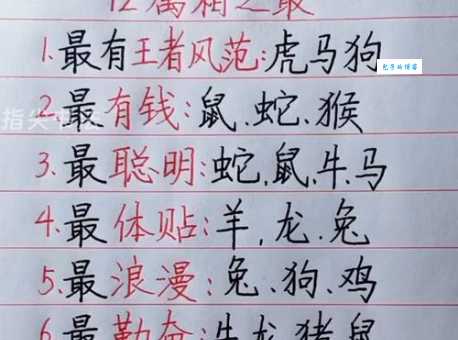 12属相之最
1.最有王者风范:虎马狗
2.最有钱:鼠.蛇.猴
3.最聪明:蛇.鼠.牛.马
4.最体贴:羊,龙.兔
5.最浪漫:兔.狗.鸡
6.最勤奋:牛龙猪鼠